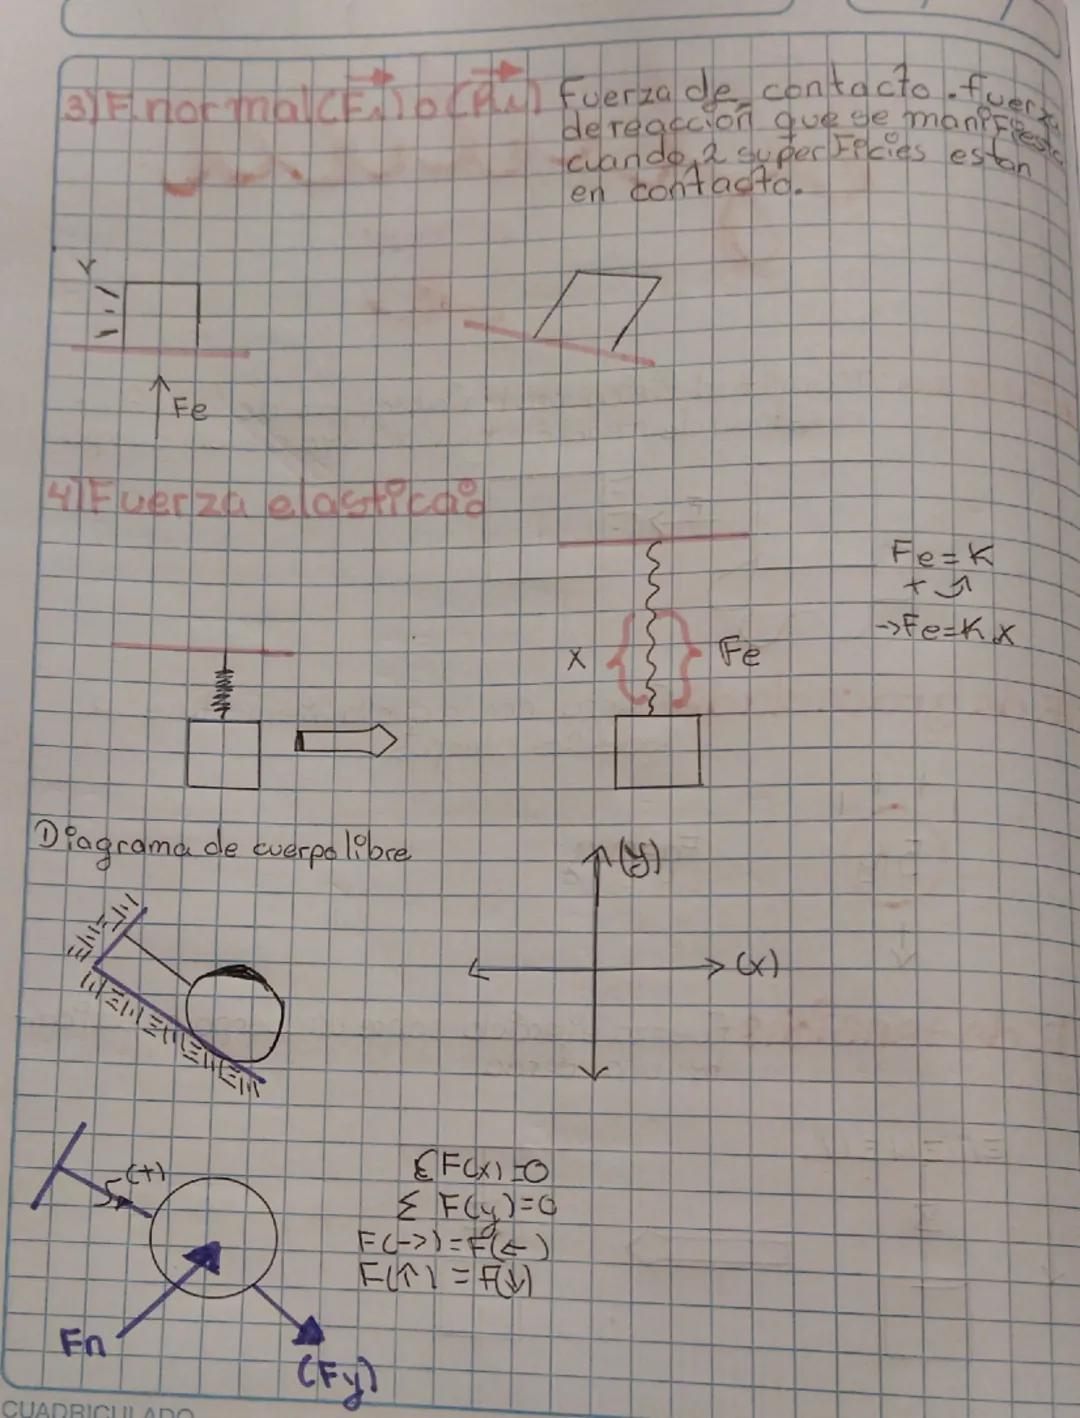 3) F. normal (F ) o ( )
Fuerza de contacto. fuerza
de reacción que se manifiesta
cuando 2 superficies estan
en contacto.
Fe
4) Fuerza elastica:
Fe = K
x
→ Fe = K.x
x
Fe
Diagrama de cuerpo libre
(y)
(x)
(T)
Σ F(x) = 0
Σ F(y) = 0
F(→) = F(←)
F(↑) = F(↓)
Fn
(Fy)
CUADRICULADO